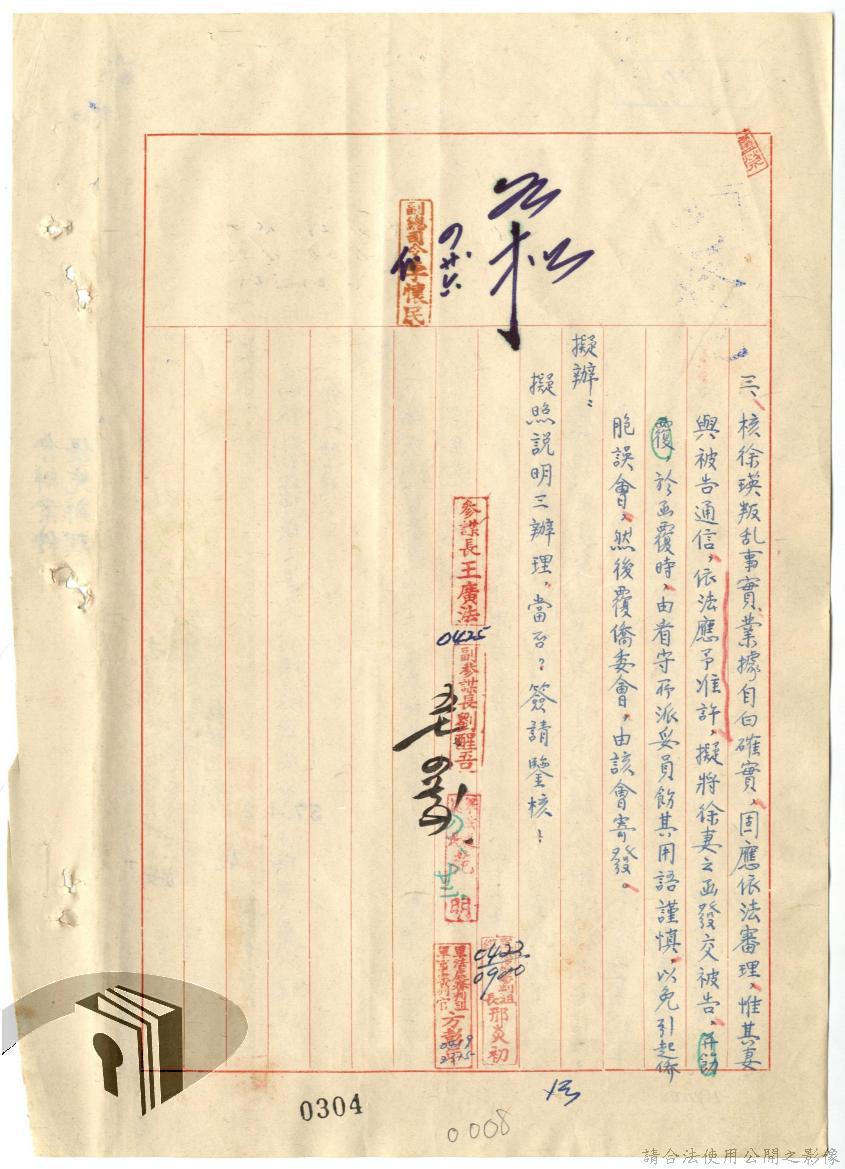 三、核徐瑛叛乱事實、業據自白確實，固應依法審理，惟其妻
與被告通信，依法應予准許，擬將徐妻之函發交被告，并飭
覆，於函覆時，由看守所派妥員飭其用語謹慎，以免引起僑
胞誤會，然後覆僑委會，由該會寄發。
擬辦：
擬照說明三辦理，當否？簽請鑒核！
副總司令李懷民
參謀長王廣法
0425
副參謀長劉醒吾
明
組長邢炎初
0422
0900
軍法處審判組
軍事審判官
方彭
0304
0008
請合法使用公開之影像